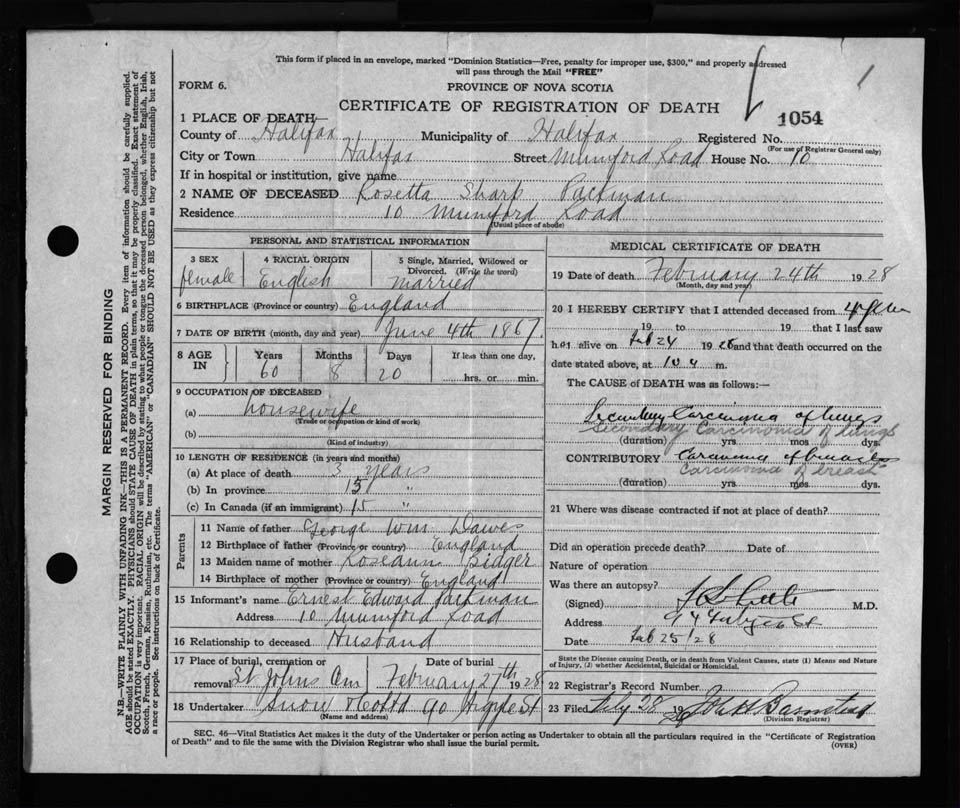 This form if placed in an envelope, marked "Dominion Statistics—Free, penalty for improper use, $300," and properly addressed
will pass through the Mail "FREE"
FORM 6.
PROVINCE OF NOVA SCOTIA
CERTIFICATE OF REGISTRATION OF DEATH
1054
1 PLACE OF DEATH—
County of Halifax Municipality of Halifax Registered No.
(For use of Registrar General only)
City or Town Halifax Street Mumford Road House No. 10
If in hospital or institution, give name
2 NAME OF DECEASED Rosetta Sharp Packman
Residence 10 Mumford Road
(Usual place of abode)
PERSONAL AND STATISTICAL INFORMATION
3 SEX female
4 RACIAL ORIGIN English
5 Single, Married, Widowed or
Divorced. (Write the word)
Married
6 BIRTHPLACE (Province or country) England
7 DATE OF BIRTH (month, day and year) June 4th 1867
8 AGE IN Years 60 Months 8 Days 20 If less than one day,
hrs. or min.
9 OCCUPATION OF DECEASED
(a) housewife
(Trade or occupation or kind of work)
(b)
(Kind of industry)
10 LENGTH OF RESIDENCE (in years and months)
(a) At place of death 3 years
(b) In province 15 "
(c) In Canada (if an immigrant) 15 "
Parents
11 Name of father George Wm. Dawes
12 Birthplace of father (Province or country) England
13 Maiden name of mother Roseann Bidger
14 Birthplace of mother (Province or country) England
15 Informant's name Ernest Edward Packman
Address 10 Mumford Road
16 Relationship to deceased Husband
17 Place of burial, cremation or removal St Johns Cem Date of burial February 27th 1928
18 Undertaker Snow & Co Ltd 90 Argyle St
(Name and address)
MEDICAL CERTIFICATE OF DEATH
19 Date of death February 24th 1928
(Month, day and year)
20 I HEREBY CERTIFY that I attended deceased from
19 to 19 that I last saw
h er alive on Feb 24 1928 and that death occurred on the
date stated above, at 10 a m.
The CAUSE of DEATH was as follows:
Secondary Carcinoma of lungs
Secondary Carcinoma of lungs
(duration) yrs. mos. dys.
CONTRIBUTORY Carcinoma of breast
Carcinoma of breast
(duration) yrs. mos. dys.
21 Where was disease contracted if not at place of death?
Did an operation precede death? Date of
Nature of operation
Was there an autopsy?
(Signed) M.D.
Address
Date Feb 25/28
State the Disease causing Death, or in death from Violent Causes, state (1) Means and Nature
of Injury, (2) whether Accidental, Suicidal or Homicidal.
22 Registrar's Record Number
23 Filed 28 19
(Division Registrar)
SEC. 46—Vital Statistics Act makes it the duty of the Undertaker or person acting as Undertaker to obtain all the particulars required in the "Certificate of Registration
of Death" and to file the same with the Division Registrar who shall issue the burial permit.
(OVER)
MARGIN RESERVED FOR BINDING
N.B.—WRITE PLAINLY WITH UNFADING INK—THIS IS A PERMANENT RECORD. Every item of information should be carefully supplied.
AGE should be stated EXACTLY. PHYSICIANS should STATE CAUSE OF DEATH in plain terms, so that it may be properly classified. Exact statement of
OCCUPATION is very important. RACIAL ORIGIN will be described by stating to what people or tongue the deceased person belonged, whether English, Irish,
Scotch, French, German, Russian, Ruthenian, etc. The terms "AMERICAN" or "CANADIAN" SHOULD NOT BE USED as they express citizenship but not
a race or people. See instructions on back of Certificate.